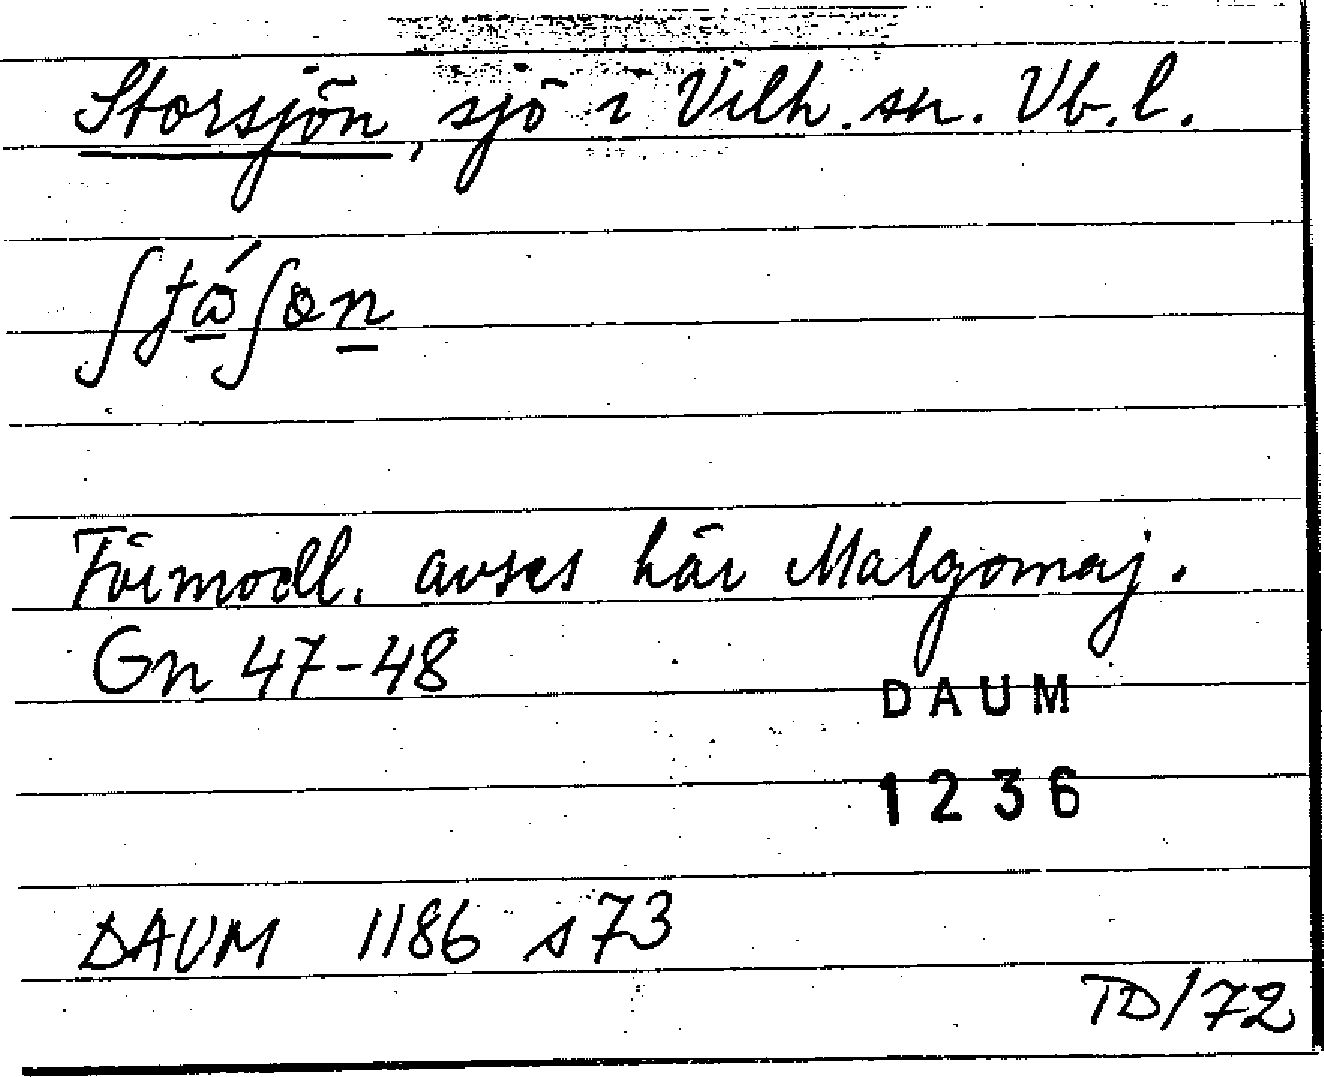 Storsjön, sjö i Vilh. sn. Vb. l.
ʃtǻʃon
Förmodl. avses här Malgomaj.
Gn 47-48
DAUM
1236
DAUM 1186 s 73
TD/72